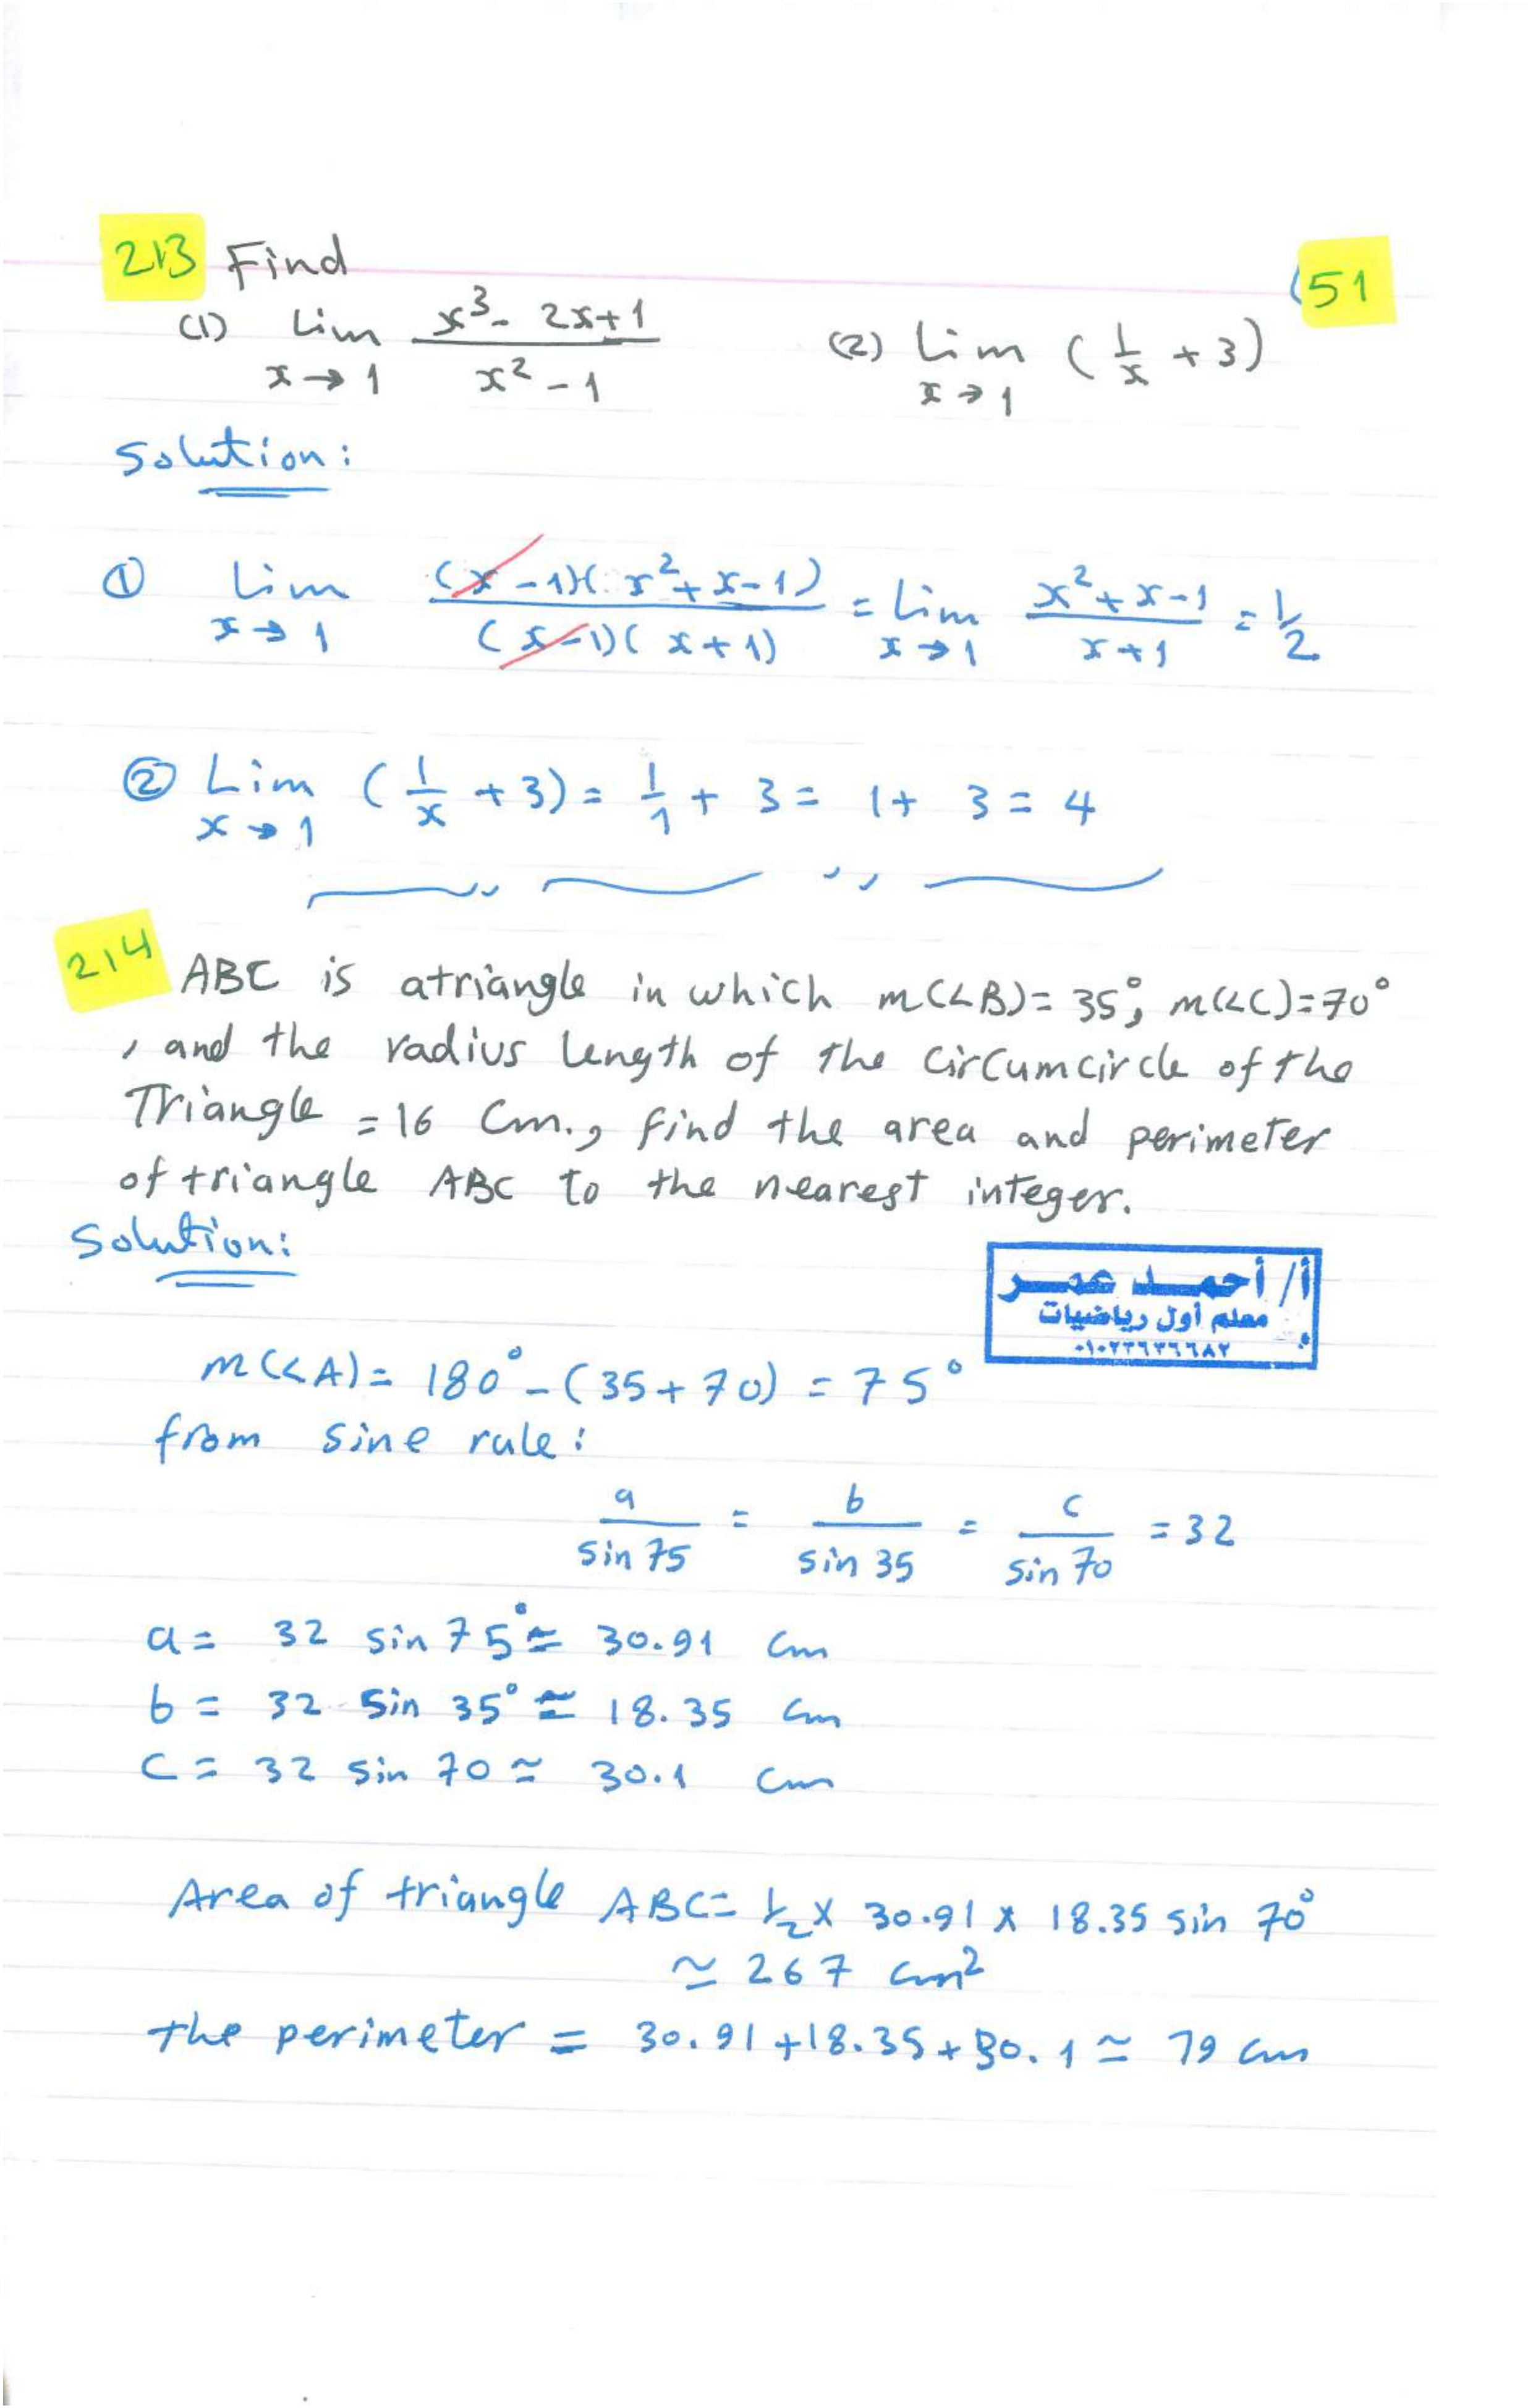 213 Find
51
(1) Lim x→1 (x³ - 2x+1)/(x² - 1) (2) Lim x→1 (1/x + 3)
Solution:
① Lim x→1 ((x-1)(x²+x-1))/((x-1)(x+1)) = Lim x→1 (x²+x-1)/(x+1) = 1/2
② Lim x→1 (1/x + 3) = 1/1 + 3 = 1 + 3 = 4
214 ABC is atriangle in which m(<B)= 35°, m(<C)=70°
, and the radius length of the circumcircle of the
Triangle = 16 Cm., find the area and perimeter
of triangle ABC to the nearest integer.
Solution:
أ/ أحمد عمر
معلم أول رياضيات
٠١٠٢٢٦٢٦٦٨٢
m(<A)= 180° - (35+70) = 75°
from sine rule:
a/sin 75 = b/sin 35 = c/sin 70 = 32
a = 32 sin 75° ≃ 30.91 cm
b = 32 sin 35° ≃ 18.35 cm
c = 32 sin 70 ≃ 30.1 cm
Area of triangle ABC = 1/2 x 30.91 x 18.35 sin 70°
≃ 267 cm²
the perimeter = 30.91+18.35+30.1 ≃ 79 cm